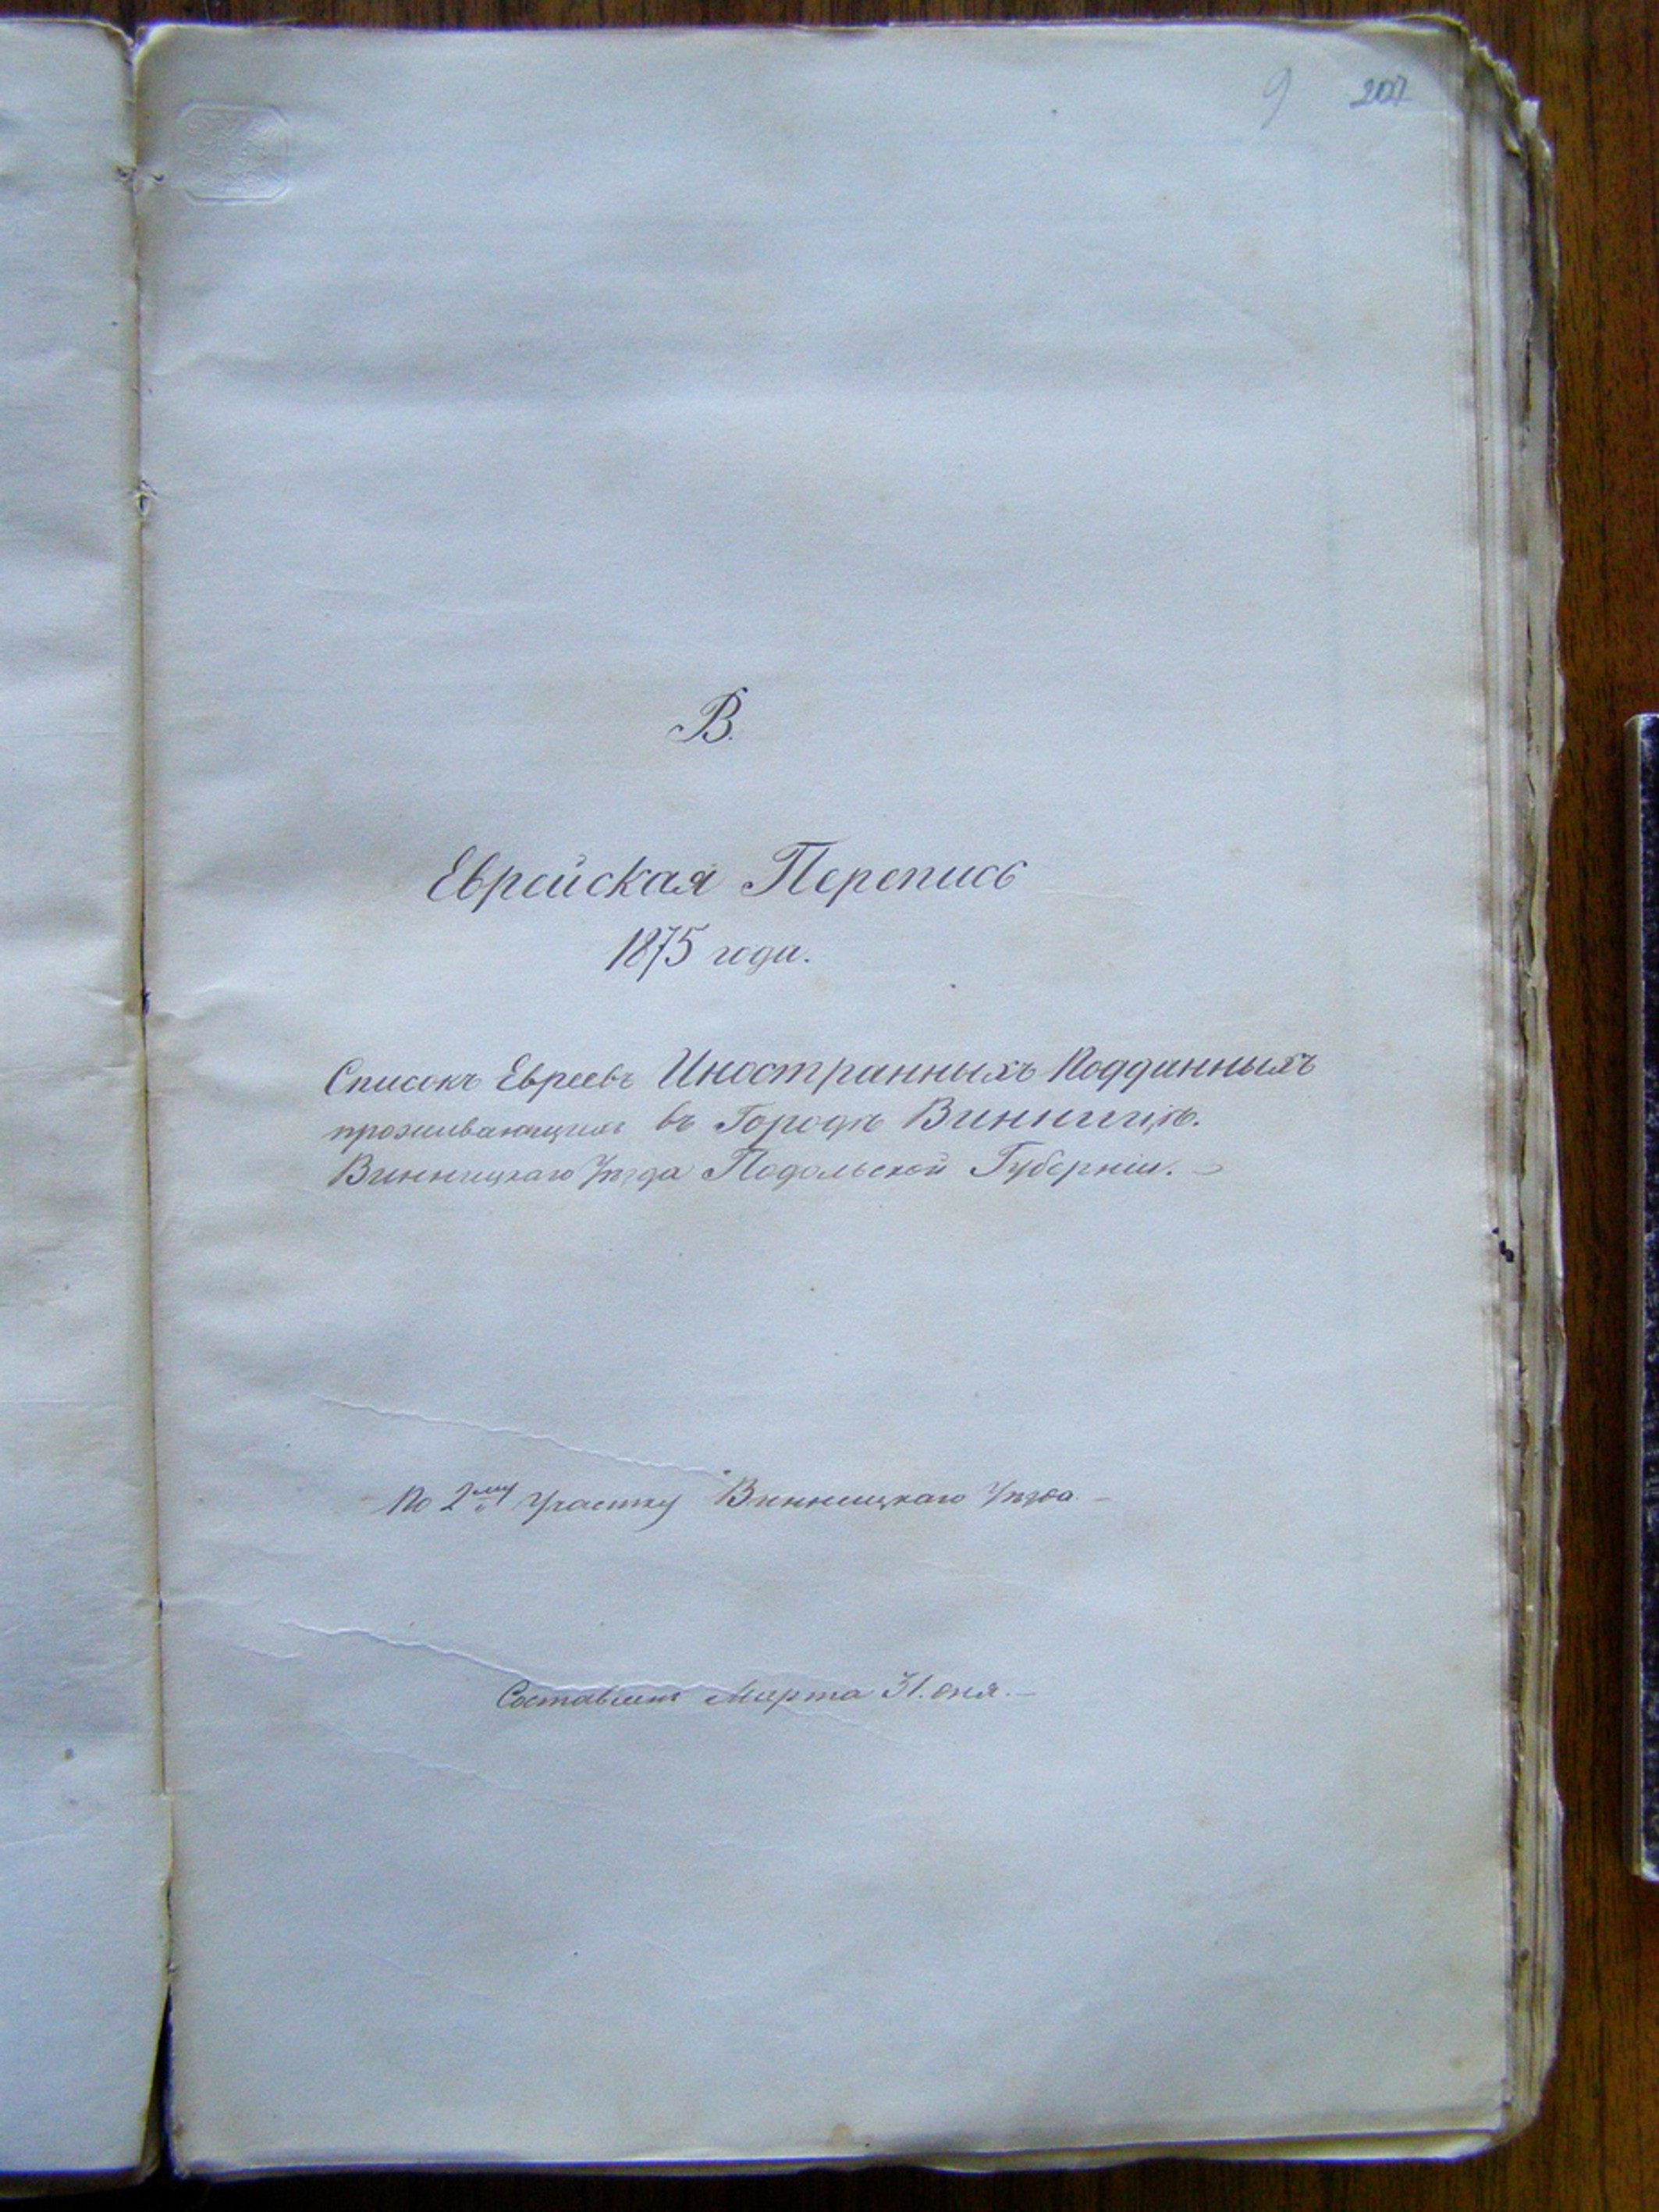 9 207
В.
Еврейская Перепись
1875 года.
Списокъ Евреевъ Иностранныхъ Подданныхъ
проживающихъ въ Городѣ Винницѣ.
Винницкаго Уѣзда Подольской Губерніи.
По 2му Участку Винницкаго Уѣзда.
Составленъ Марта 31. дня.